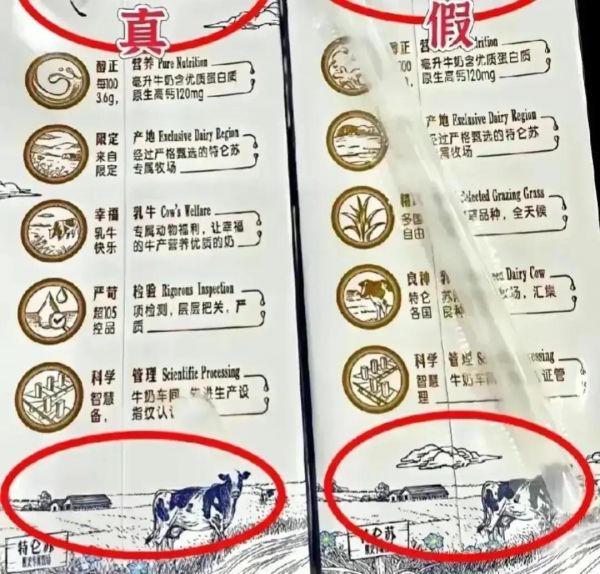 真
醇正 营养 Pure Nutrition
每100 毫升牛奶含优质蛋白质
3.6g, 原生高钙120mg
限定 产地 Exclusive Dairy Region
来自 经过严格甄选的特仑苏
限定 专属牧场
幸福 乳牛 Cow's Welfare
乳牛 专属动物福利，让幸福
快乐 的牛产营养优质的奶
严苛 检验 Rigorous Inspection
超105 项检测，层层把关，严
控品 质
科学 管理 Scientific Processing
智慧 牛奶车间，先进生产设
备， 指纹认证
特仑苏
假
醇正
每100 毫升牛奶含优质蛋白质
3.6g, 原生高钙120mg
产地 Exclusive Dairy Region
经过严格甄选的特仑苏
属牧场
Selected Grazing Grass
多国 品种，全天候
自由
良种 Dairy Cow
特仑 苏 牧场，汇集
各国 良种
科学 管理
智慧 牛奶车间 认证管
理
特仑苏